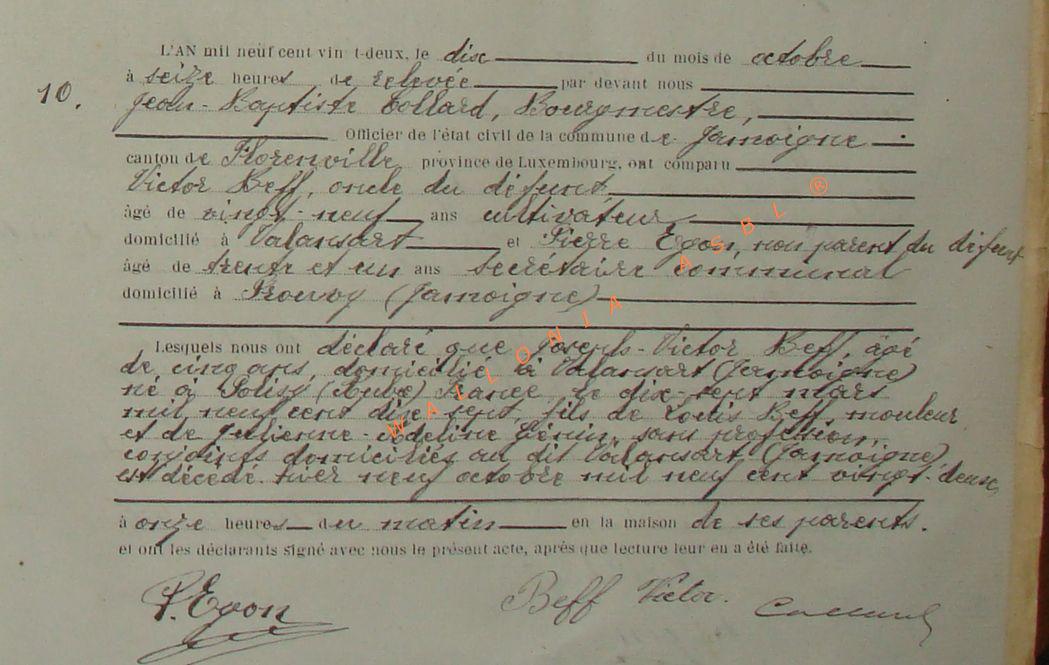 L'AN mil neuf cent vingt-deux, le dix du mois de octobre
à seize heures de relevée par devant nous
10.
Jean-Baptiste Collard, Bourgmestre,
Officier de l'état civil de la commune de Jamoigne
canton de Florenville province de Luxembourg, ont comparu
Victor Beff, oncle du défunt,
âgé de vingt-neuf ans cultivateur
domicilié à Valansart et Pierre Egon, non parent du défunt
âgé de trente et un ans secrétaire communal
domicilié à Prouvy (Jamoigne)
Lesquels nous ont déclaré que Joseph-Victor Beff, âgé
de cinq ans, domicilié à Valansart (Jamoigne)
né à (Aube) France, le dix-sept mars
mil neuf cent dix-sept, fils de Louis Beff, mouleur
et de Julienne sans profession,
conjoints domiciliés au dit Valansart (Jamoigne)
est décédé hier neuf octobre mil neuf cent vingt-deux,
à onze heures du matin en la maison de ses parents.
et ont les déclarants signé avec nous le présent acte, après que lecture leur en a été faite.
P. Egon Beff Victor.
WALLONIA ASBL ®